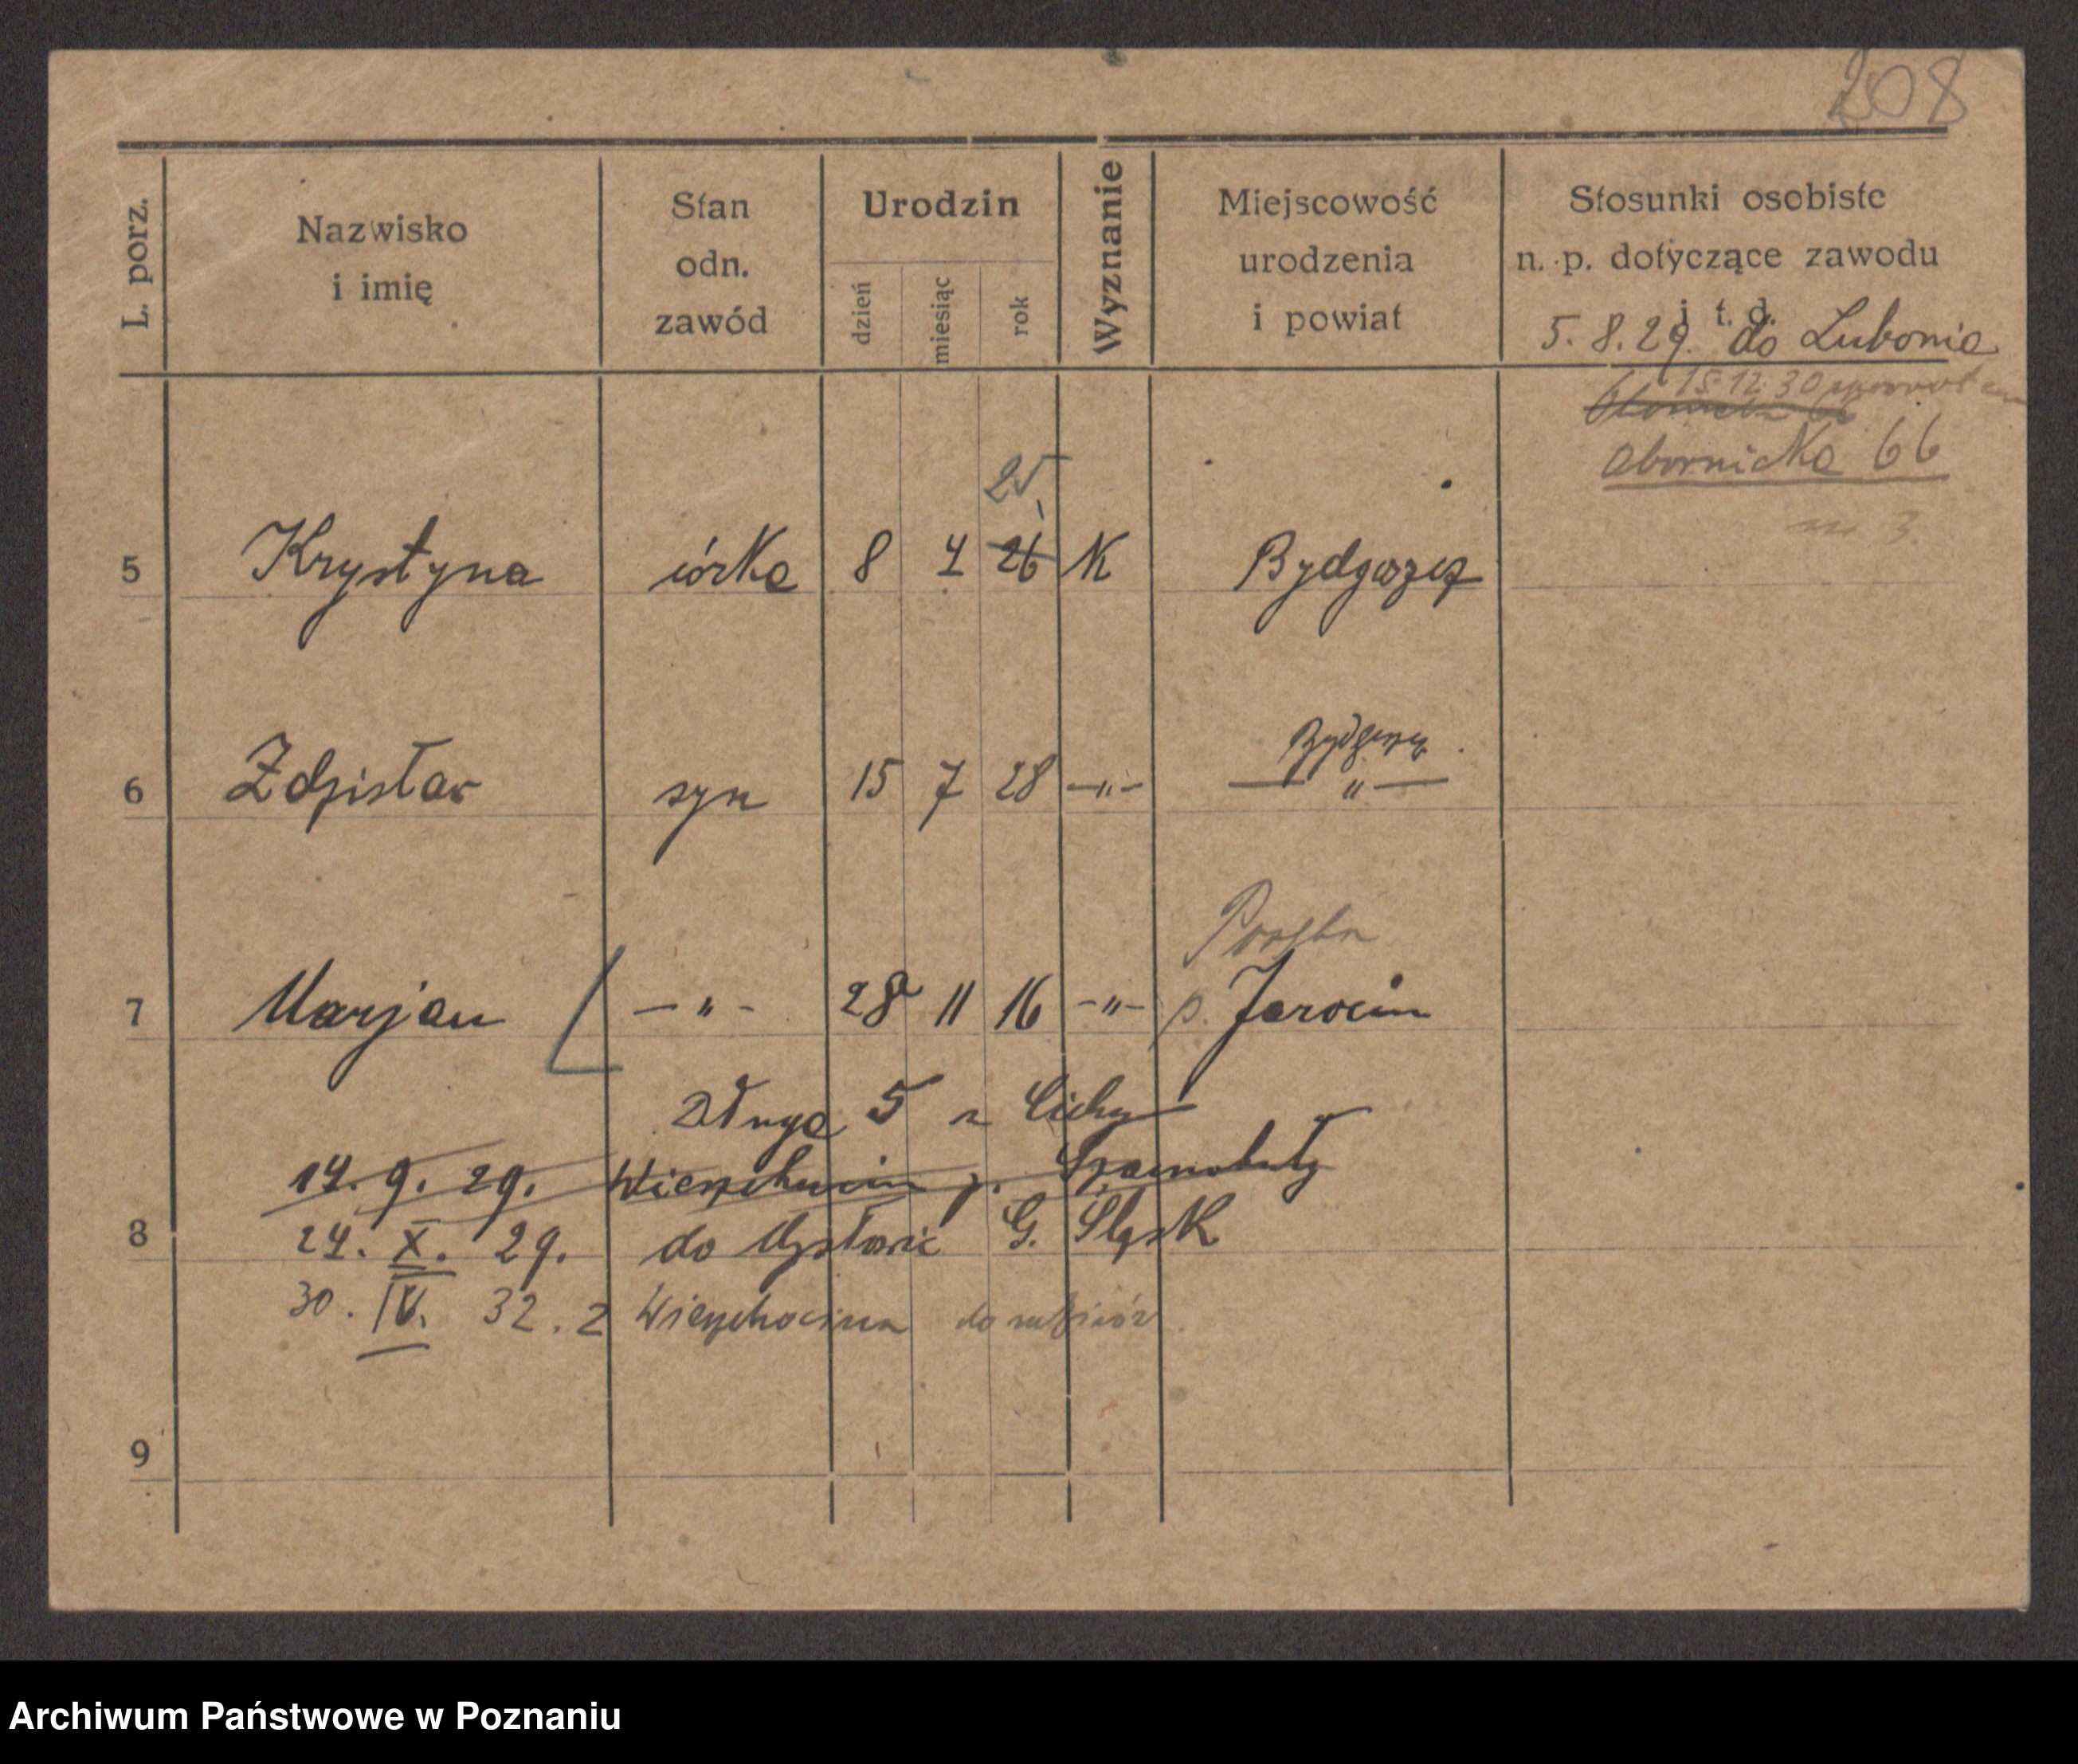 208
L. porz.
Nazwisko
i imię
Stan
odn.
zawód
Urodzin
dzień
miesiąc
rok
Wyznanie
Miejscowość
urodzenia
i powiat
Stosunki osobiste
n. p. dotyczące zawodu
i t. d.
5. 8. 29. do Lubonia
15.12.30
Obornicka 66
m 3.
25
5 Krystyna córka 8 4 26 K Bydgoszcz
Bydgoszcz
6 Zdzisław syn 15 7 28 —"— —"—
7 Marjan —"— 28 11 16 —"— p. Jarocin
Długa 5 Cichy
14. 9. 29. p. Szamotuły
8 24. X. 29. do Mysłowic G. Śląsk
30. IV. 32. z
9
Archiwum Państwowe w Poznaniu